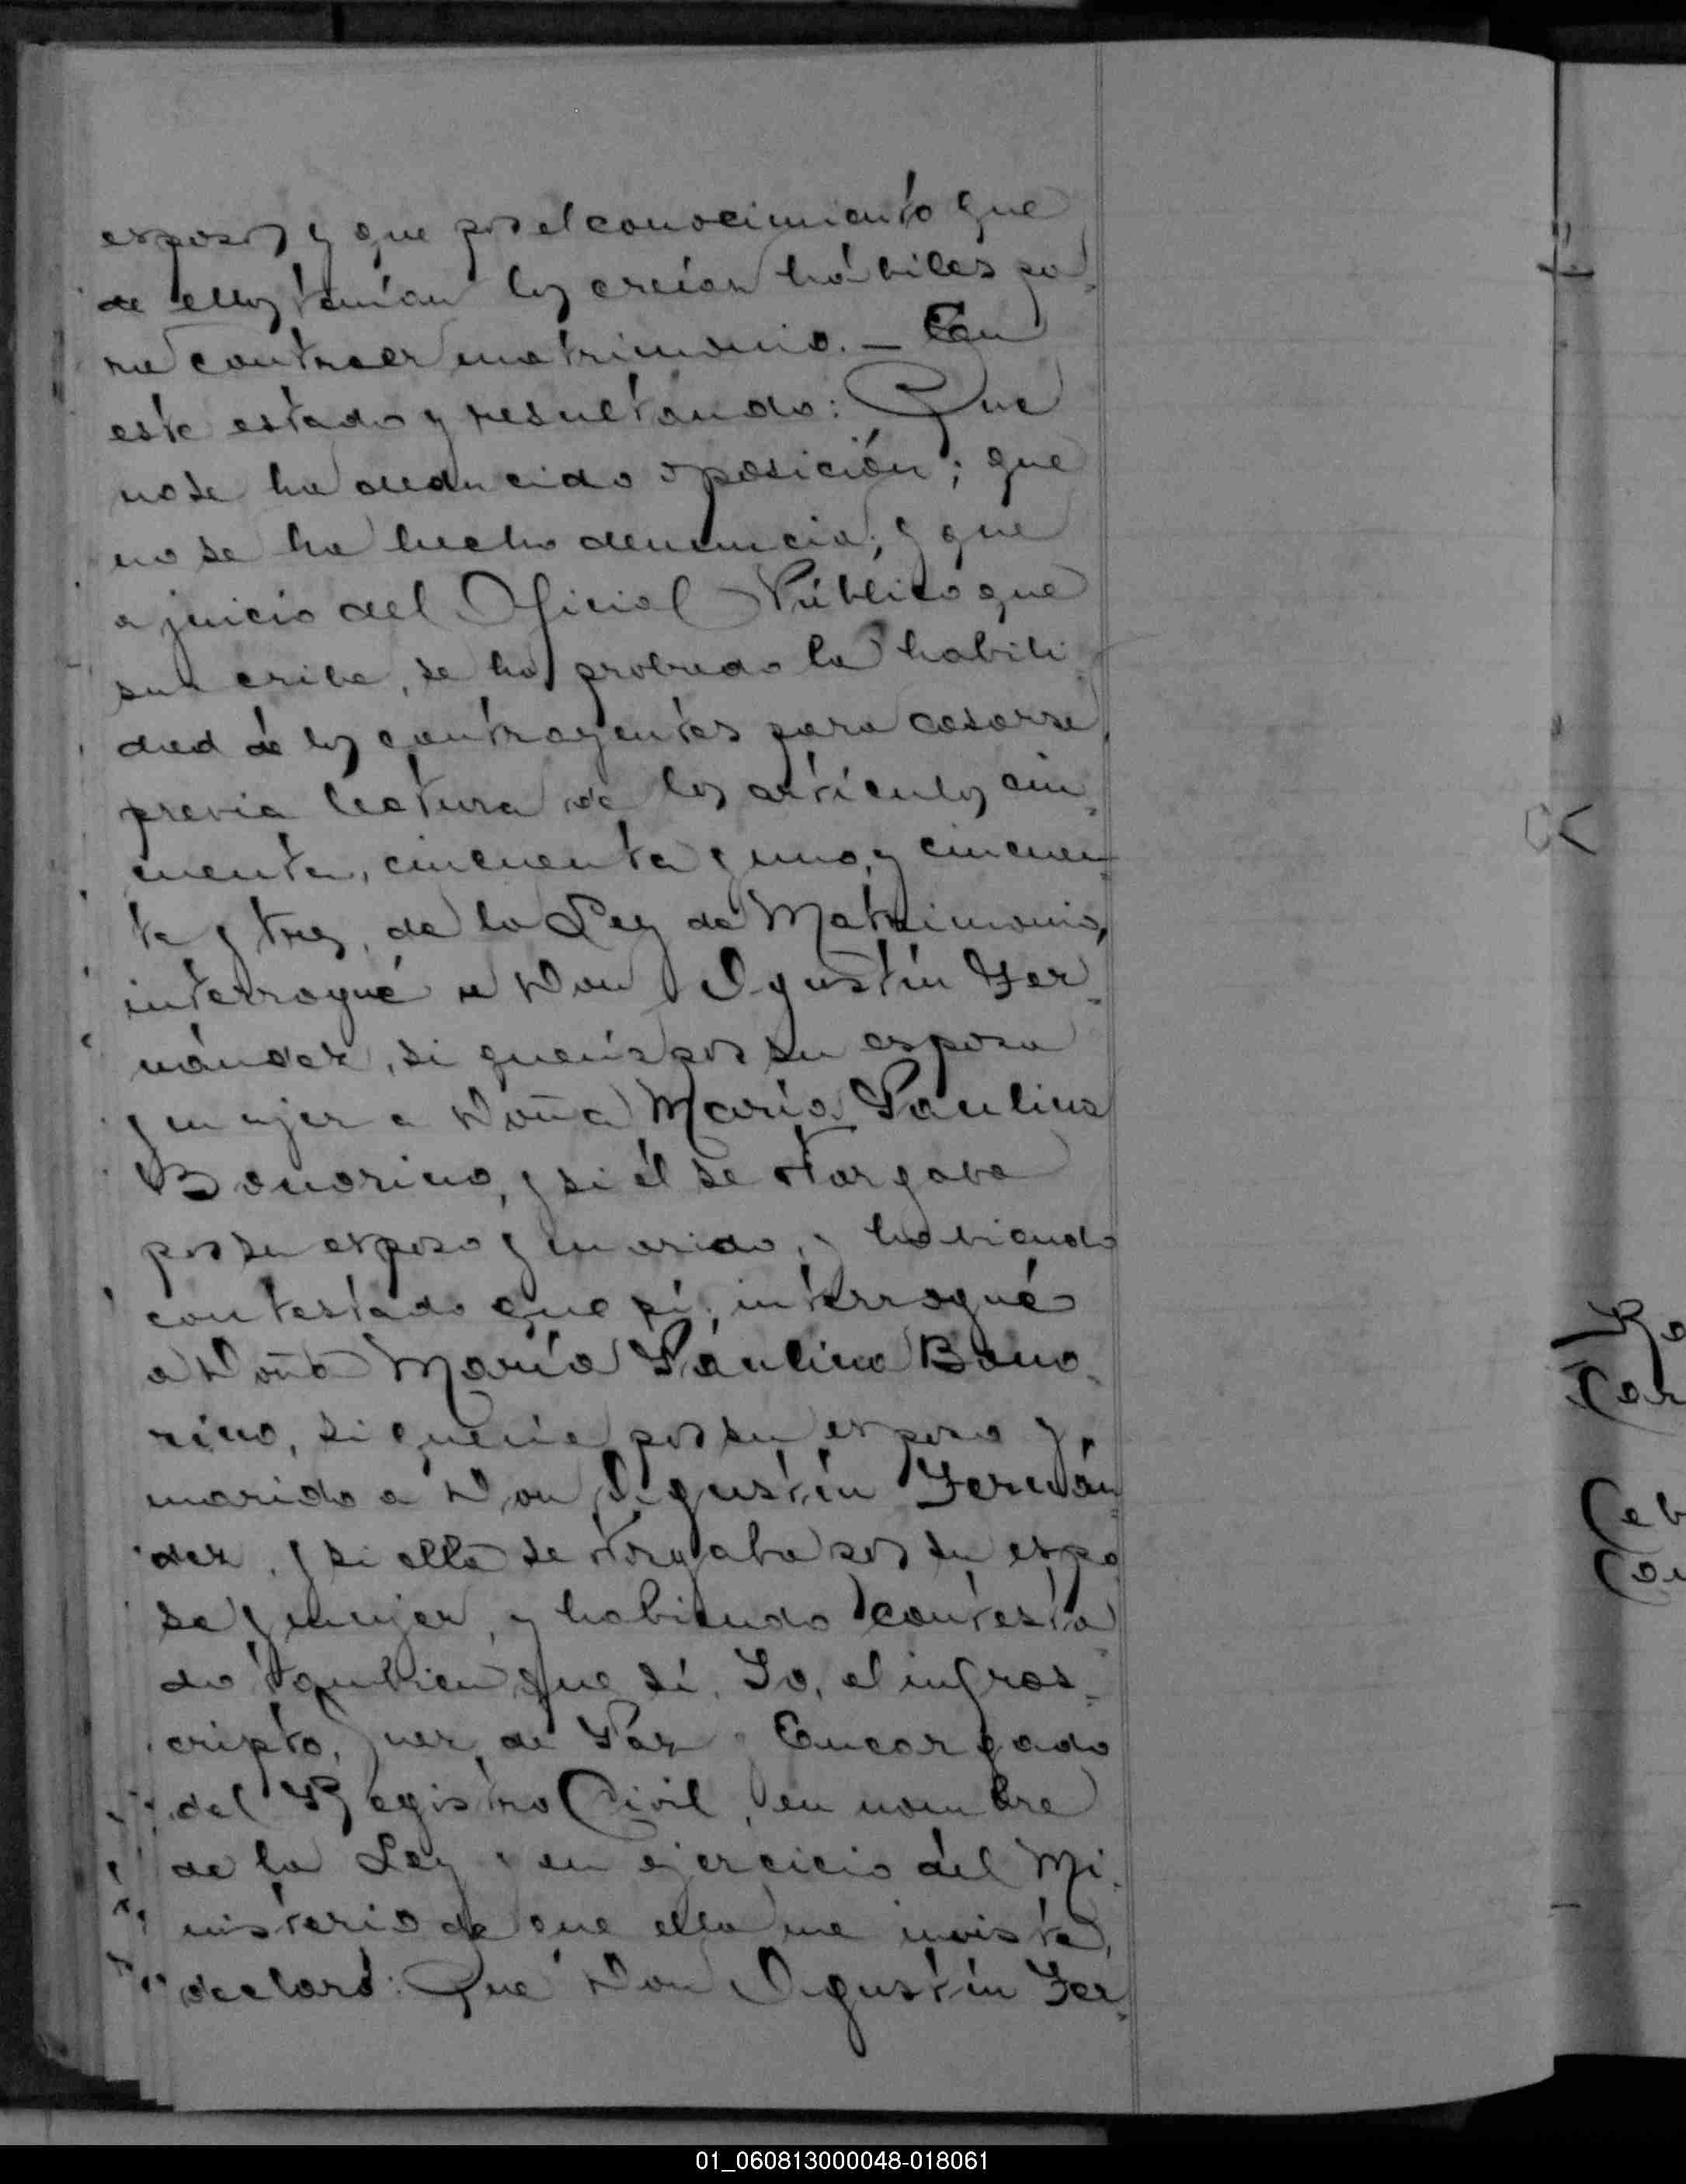 esposos y que por el conocimiento que
de ellos tenían los creían hábiles pa-
ra contraer matrimonio. — En
este estado y resultando: Que
no se ha deducido oposición; que
no se ha hecho denuncia; y que
a juicio del Oficial Público que
suscribe, se ha probado la habili
dad de los contrayentes para casarse,
previa lectura de los artículos cin-
cuenta, cincuenta y uno, y cincuen-
ta y tres, de la Ley de Matrimonio,
interrogué a Don Agustín Fer-
nández, si quería por su esposa
y mujer a Doña María Paulina
Bonorino, y si él se otorgaba
por su esposo y marido, y habiendo
contestado que sí, interrogué
a Doña María Paulina Bono-
rino, si quería por su esposo y
marido a Don Agustín Fernán-
dez, y si ella se otorgaba por su espo
sa y mujer, y habiendo contesta-
do también que sí. Yo, el infras-
cripto, Juez de Paz y Encargado
del Registro Civil, en nombre
de la Ley y en ejercicio del Mi-
nisterio de que ella me inviste,
declaro: Que Don Agustín Fer-
Ce
01_060813000048-018061